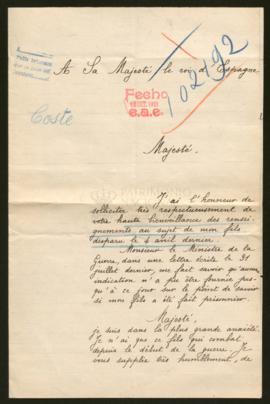 A Sa Majesté le roi d'Espagne
Fecho
e.a.e.
102492
Coste
Majesté.
J'ai l'honneur de
solliciter très respectueusement de
votre haute bienveillance des rensei-
gnements au sujet de mon fils
disparu le 4 avril dernier.
Monsieur le Ministre de la
Guerre, dans une lettre écrite le 31
juillet dernier, me fait savoir qu'aucune
indication n'a pu être fournie jus-
qu'à ce jour sur le point de savoir
si mon fils a été fait prisonnier.
Majesté,
je suis dans la plus grande anxiété.
Je n'ai que ce fils qui combat
depuis le début de la guerre. Je
vous supplie très humblement, de